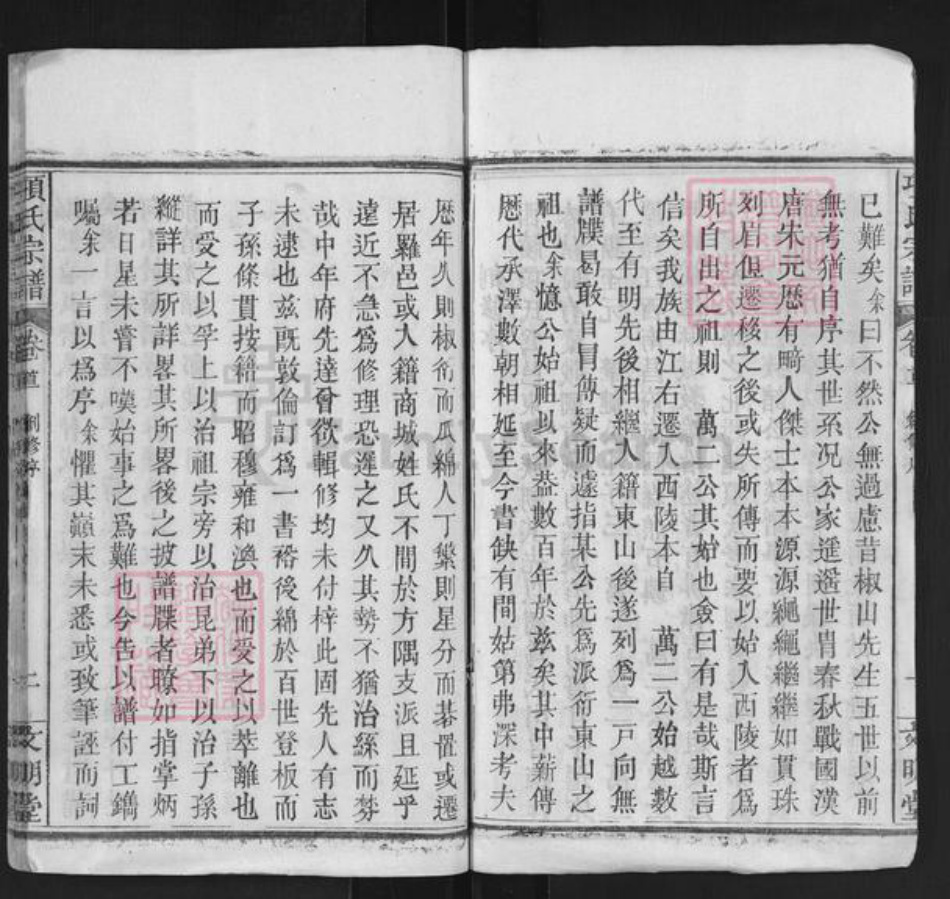 已難矣余曰不然公無過慮昔椒山先生五世以前
無考猶自序其世系况公家遥遥世胄春秋戰國漢
唐宋元歴有畸人傑士本本源源繩繩繼繼如貫珠
列眉但遷移之後或失所傳而要以始入西陵者爲
所自出之祖則 萬二公其始也僉曰有是哉斯言
信矣我族由江右遷入西陵本自 萬二公始越數
代至有明先後相繼入籍東山後遂列爲一戸向無
譜牒曷敢自冒傳疑而遽指某公先爲派衍東山之
祖也余憶公始祖以來葢數百年於兹矣其中薪傳
厯代承澤數朝相延至今書缺有間姑第弗深考夫
厯年久則椒衍而瓜綿人丁繁則星分而碁置或遷
居羅邑或入籍商城姓氏不間於方隅支派且延乎
遠近不急爲修理恐遲之又久其勢不猶治絲而棼
哉中年府先達曾欲輯修均未付梓此固先人有志
未逮也兹既敦倫訂爲一書裕後綿於百世登板而
子孫條貫按籍而昭穆雍和渙也而受之以萃離也
而受之以孚上以治祖宗旁以治昆弟下以治子孫
縱詳其所詳畧其所畧後之披譜牒者瞭如指掌炳
若日星未嘗不嘆始事之爲難也今告以譜付工鐫
囑余一言以爲序余懼其巔末未悉或致筆誣而詞
項氏宗譜
卷首
創修序
二
文明堂